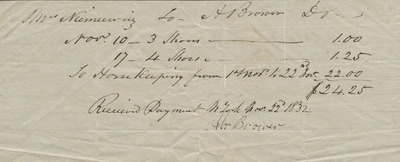 Niemcewicz To A Brower Dr
Nov. 10 - 3 Shoes - 1.00
17 - 4 Shoes - 1.25
To Horsekeeping from 1st Nov. to 22nd Nov. 22.00
$24.25
Received Payment N York Nov. 22d 1832
Brower